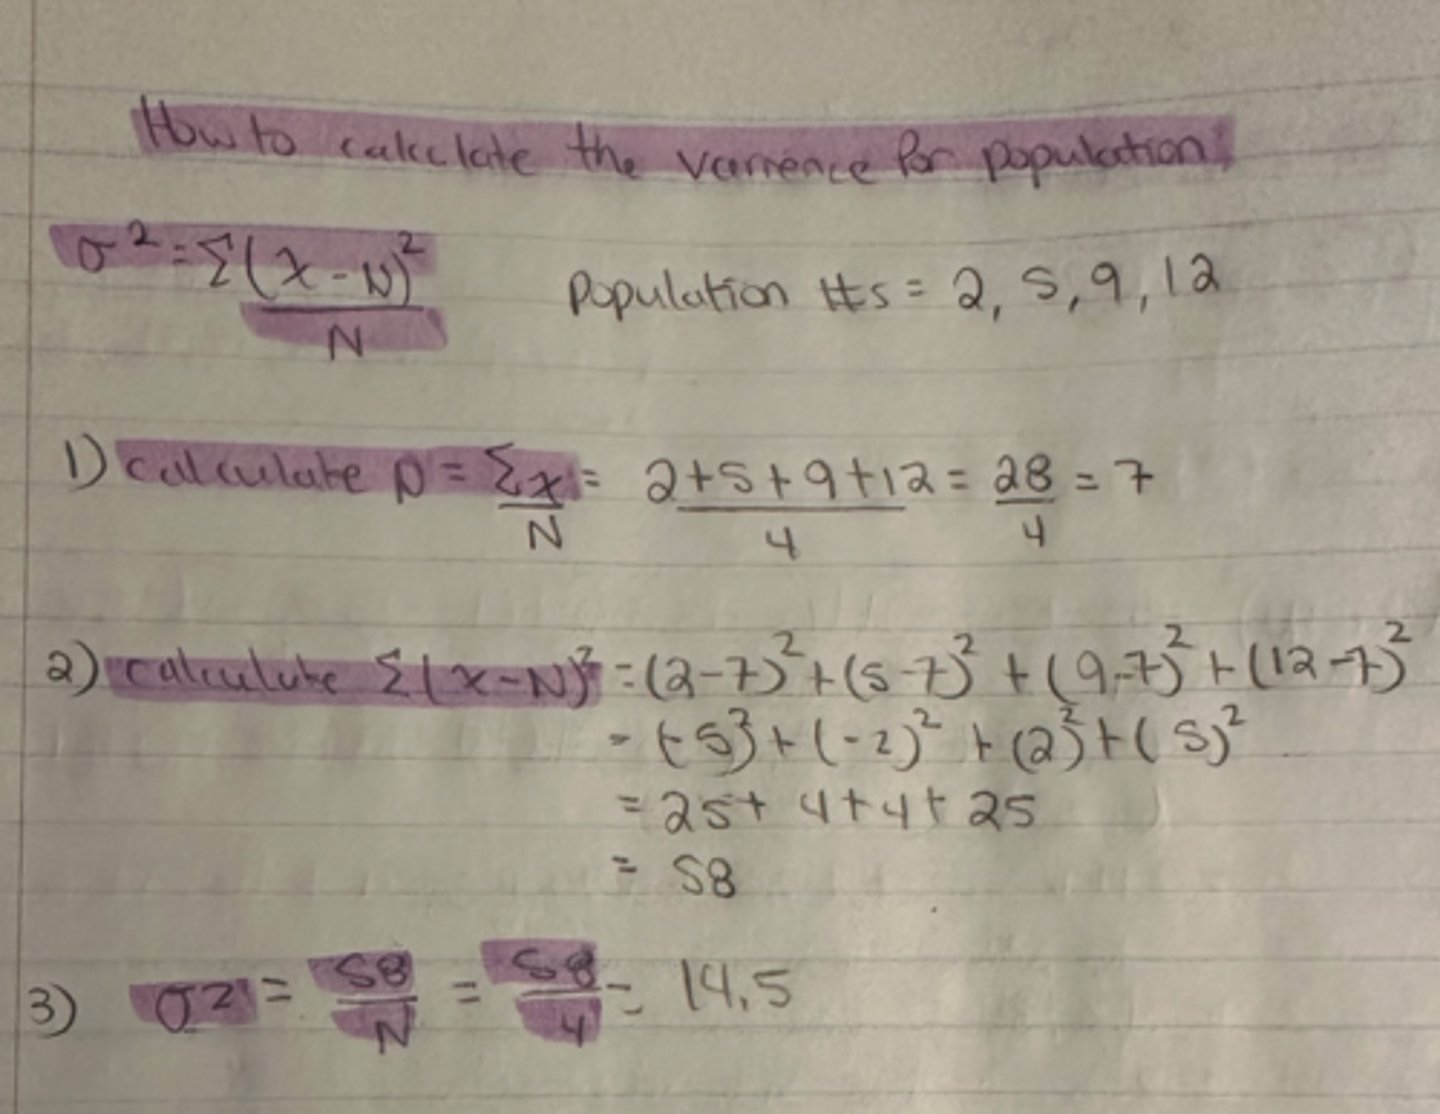 How to calculate the varrience for population!
σ² = Σ(x - N)² / N Population #s = 2, 5, 9, 12
1) calculate N = Σx / N = 2+5+9+12 / 4 = 28 / 4 = 7
2) calculate Σ(x-N)² = (2-7)² + (5-7)² + (9-7)² + (12-7)²
= (-5)² + (-2)² + (2)² + (5)²
= 25 + 4 + 4 + 25
= 58
3) σ² = 58 / N = 58 / 4 = 14.5